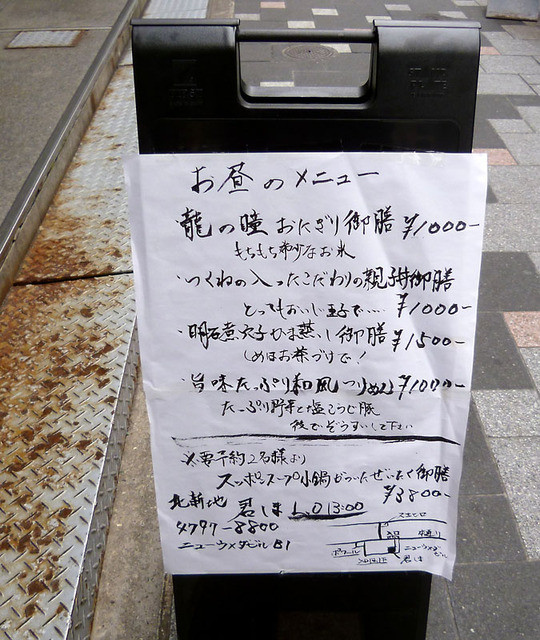 お昼のメニュー
・龍の瞳おにぎり御膳 ¥1000-
もちもち希少なお米
・つくねの入ったこだわりの親子丼御膳
とってもおいしい玉子で…. ¥1000-
・明石煮穴子かま蒸し御膳 ¥1500-
しめはお茶づけで!
・旨味たっぷり和風つけめん ¥1000-
たっぷり野菜と塩こうじ豚
後でぞうすいして下さい
※要予約2名様より
スッポンスープ小鍋がついたぜいたく御膳
¥3800-
北新地 君しほ L.O 13:00
4797-8800
ニューウメダビルB1
ニューウメダ
ビル
君しほ